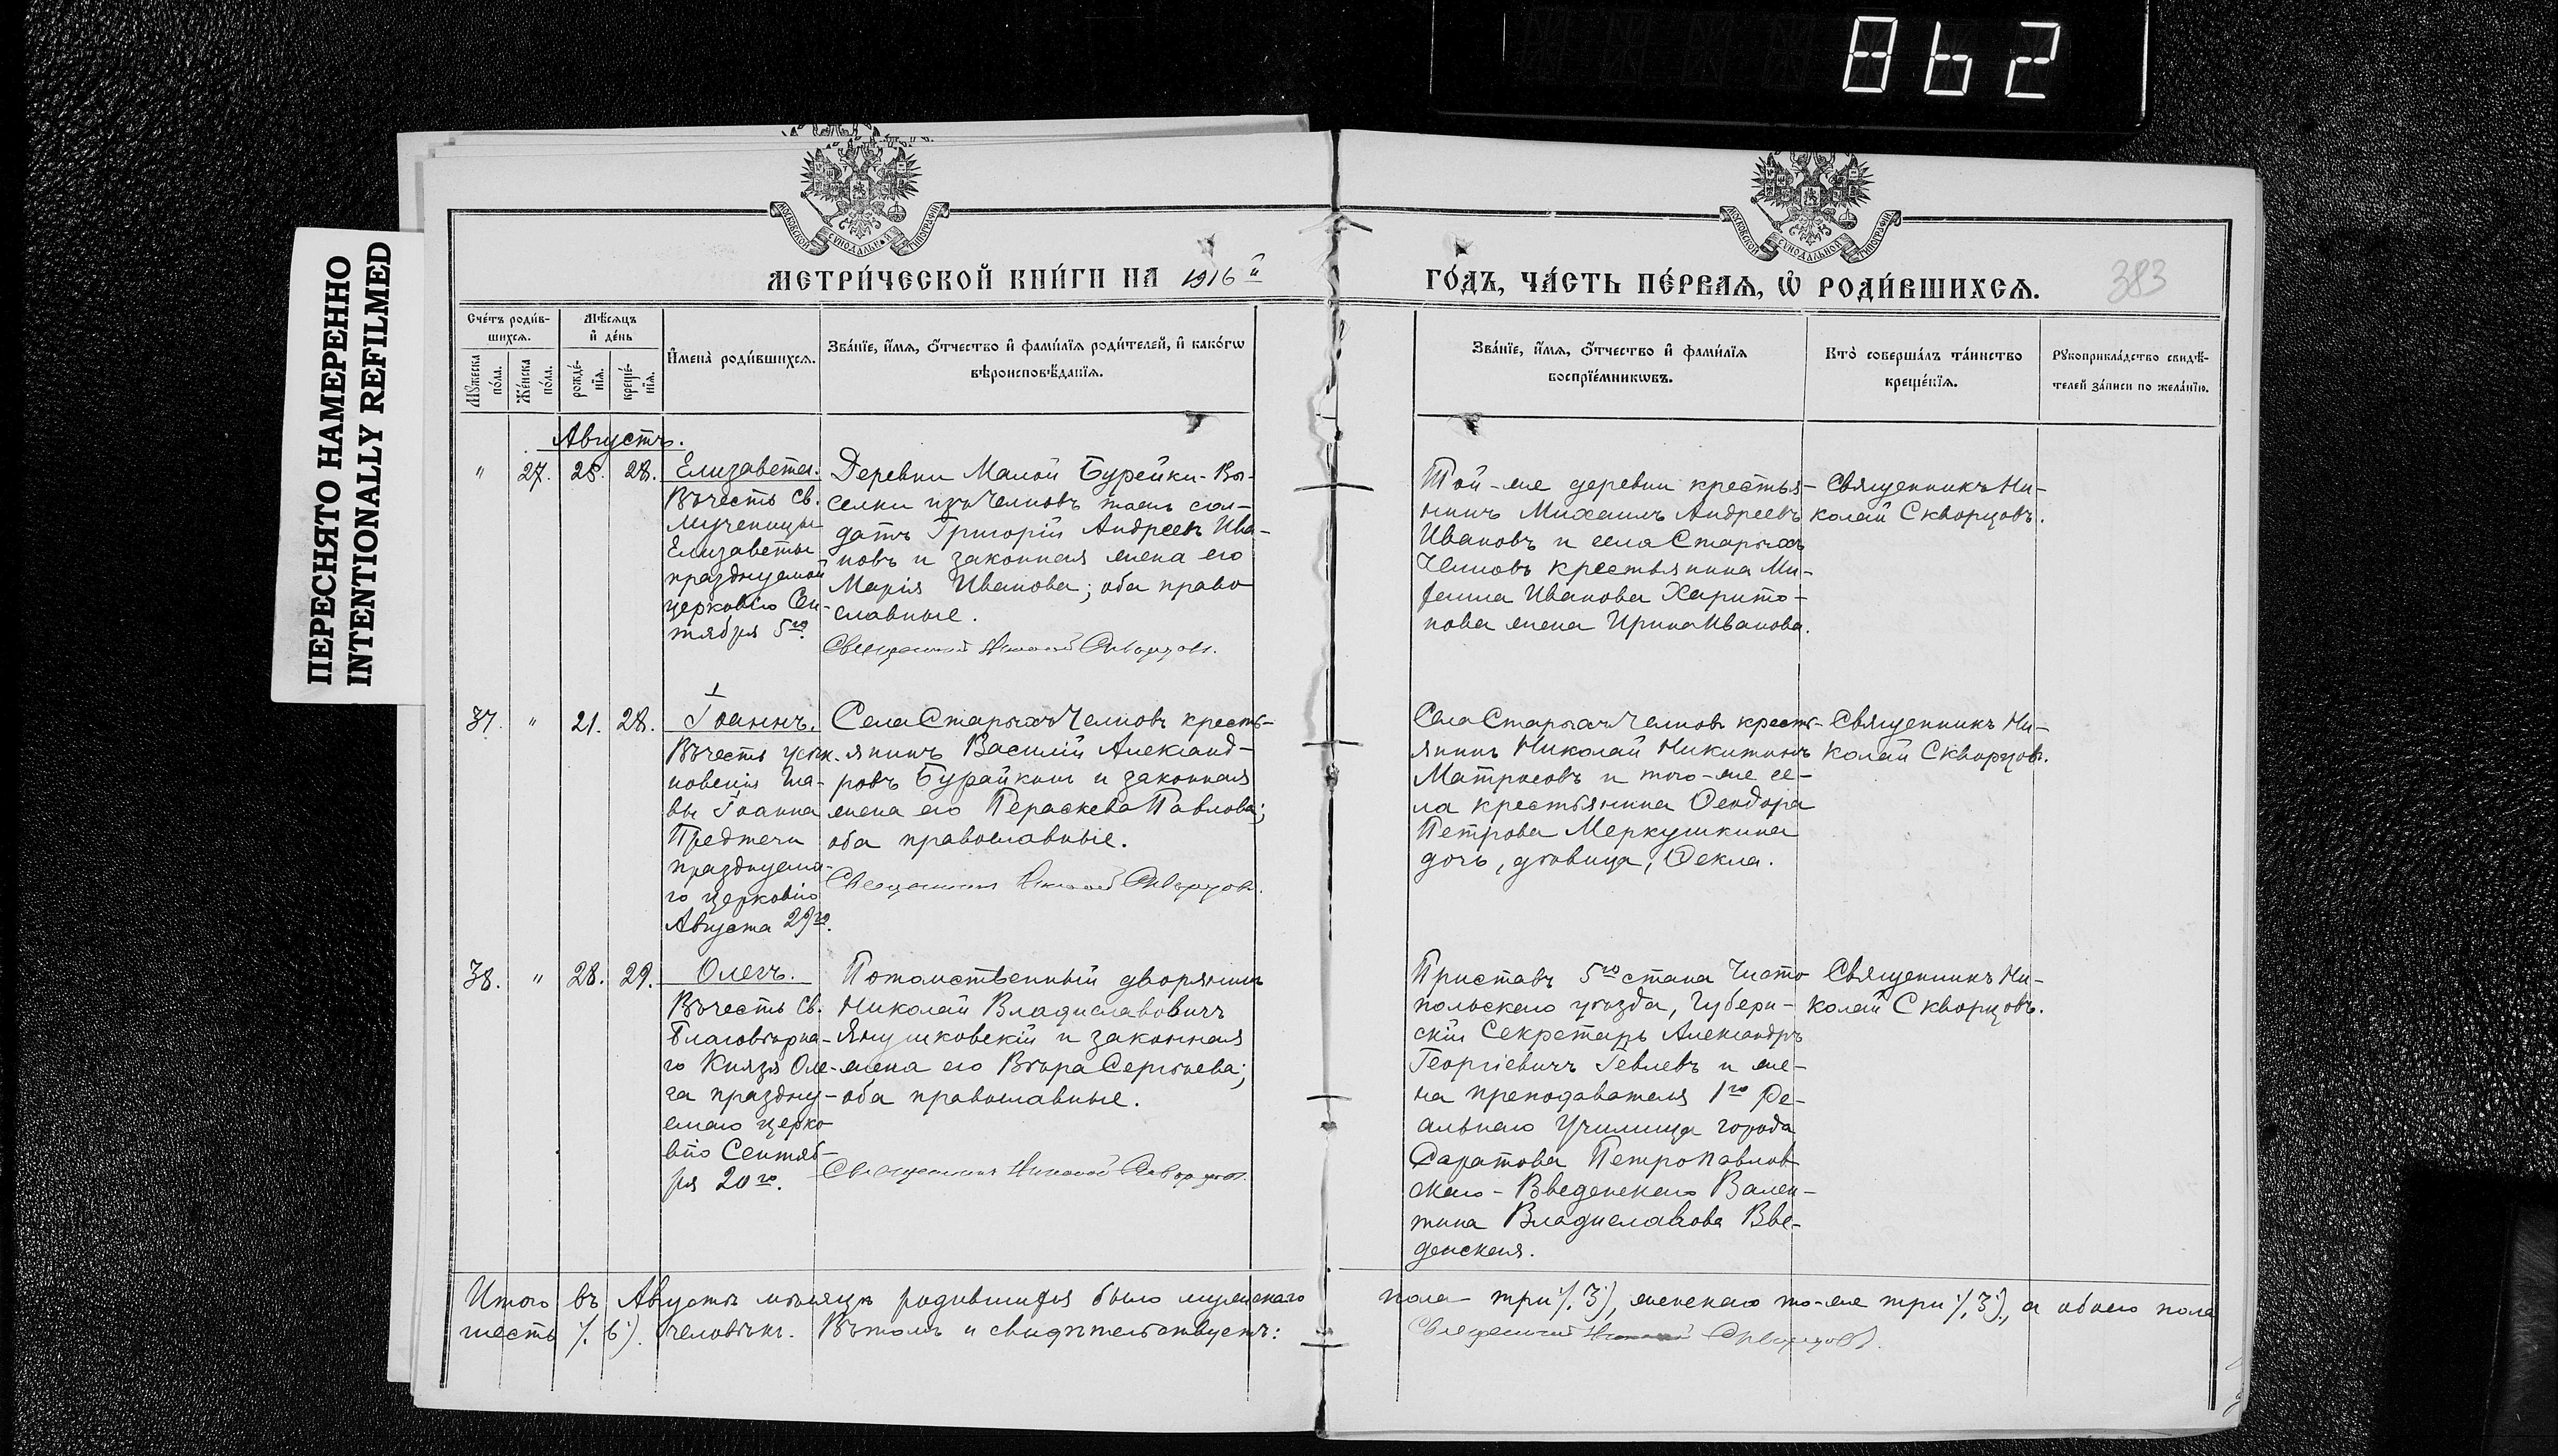 862
ПЕРЕСНЯТО НАМЕРЕННО
INTENTIONALLY REFILMED
МОСКОВСКОЙ СУНОДАЛЬНОЙ ТИПОГРАФІИ
МОСКОВСКОЙ СУНОДАЛЬНОЙ ТИПОГРАФІИ
МЕТРИ́ЧЕСКОЙ КНИ́ГИ НА 1916й
ГО́ДЪ, ЧА́СТЬ ПЕ́РВАѦ, Ѡ҆ РОДИ́ВШИХСѦ.
383
Сче́тъ роди́в-
шихсѧ.
Мꙋжеска по́ла.
Же́нска по́ла.
Мѣ́сѧцъ
и҆ де́нь
рожде́-
нїѧ.
креще́-
нїѧ.
И҆мена̀ роди́вшихсѧ.
Зва́нїе, и҆́мѧ, ѻ҆́тчество и҆ фами́лїѧ роди́телей, и҆ како́гѡ
вѣроисповѣ́данїѧ.
Зва́нїе, и҆́мѧ, ѻ҆́тчество и҆ фами́лїѧ
воспрїе́мникѡвъ.
Кто̀ соверша́лъ та́инство
креще́нїѧ.
Рꙋкоприкла́дство свидѣ́-
телей за́писи по жела́нїю.
Августъ.
" 27. 25. 28. Елизавета.
Въ честь Св.
Мученицы
Елизаветы
празднуемой
церковію Сен-
тября 5го.
Деревни Малой Бурейки-Вы-
селки изъ Челновъ тожъ сол-
датъ Григорій Андреевъ Ива-
новъ и законная жена его
Марія Иванова; оба право-
славные.
Священникъ Николай Скворцовъ.
Той-же деревни крестья-
нинъ Михаилъ Андреевъ
Ивановъ и села Старыхъ
Челновъ крестьянина Ми-
хаила Иванова Харито-
нова жена Ирина Иванова.
Священникъ Ни-
колай Скворцовъ.
37. " 21. 28. Іоаннъ.
Въ честь усѣк-
новенія Гла-
вы Іоанна
Предтечи
празднуема-
го церковію
Августа 29го.
Села Старыхъ Челновъ кресть-
янинъ Василій Александ-
ровъ Бурайкинъ и законная
жена его Параскева Павлова;
оба православные.
Священникъ Николай Скворцовъ.
Села Старыхъ Челновъ кресть-
янинъ Николай Никитинъ
Матросовъ и того-же се-
ла крестьянина Ѳеодора
Петрова Меркушкина
дочь, дѣвица, Ѳекла.
Священникъ Ни-
колай Скворцовъ.
38. " 28. 29. Олегъ.
Въ честь Св.
Благовѣрна-
го Князя Оле-
га праздну-
емаго церко-
вію Сентяб-
ря 20го.
Потомственный дворянинъ
Николай Владиславовичъ
Янушковскій и законная
жена его Вѣра Сергѣева;
оба православные.
Священникъ Николай Скворцовъ.
Приставъ 5го стана Чисто-
польскаго уѣзда, Губерн-
скій Секретарь Александръ
Георгіевичъ Гевлевъ и же-
на преподавателя 1го Ре-
альнаго Училища города
Саратова Петропавлов-
скаго-Введенскаго Вален-
тина Владиславова Вве-
денская.
Священникъ Ни-
колай Скворцовъ.
Итого въ Августѣ мѣсяцѣ родившихся было мужескаго пола три /.3/, женскаго то-же три /.3/., а обоего пола
шесть /.6/. человѣкъ. Въ томъ и свидѣтельствуетъ:
Священникъ Николай Скворцовъ.